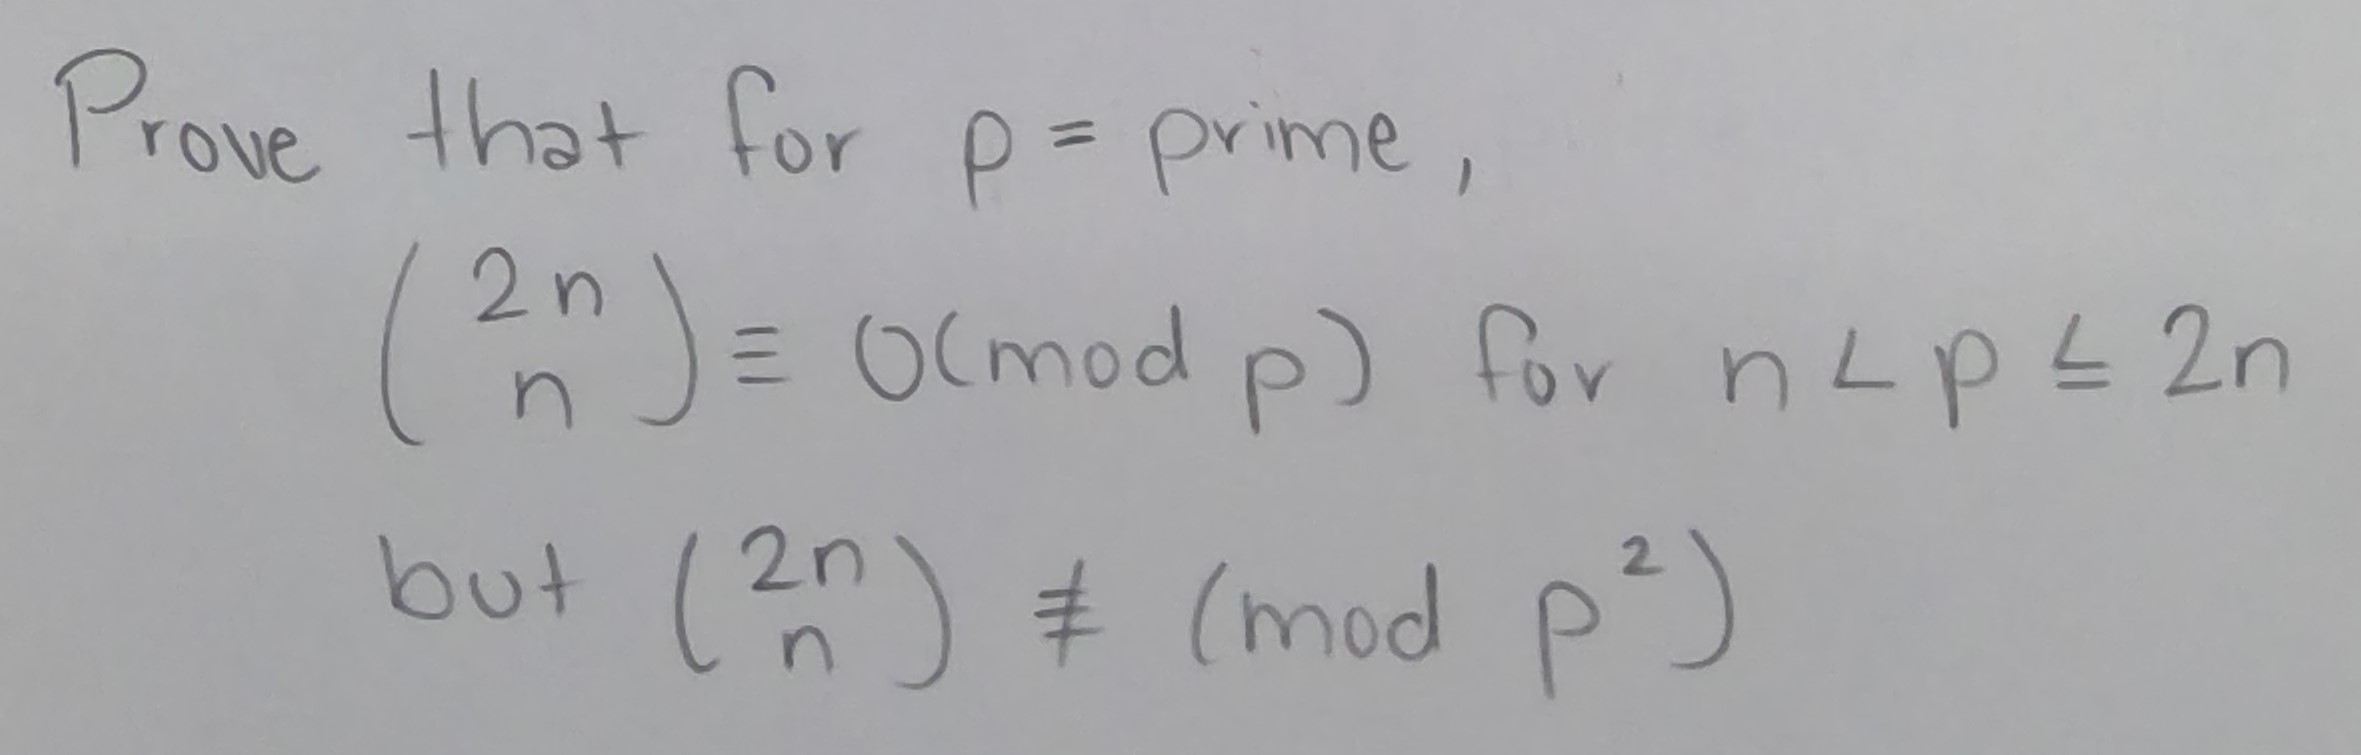 Prove that for p = prime,
(2n n) ≡ 0(mod p) for n < p ≤ 2n
but (2n n) ≢ (mod p²)